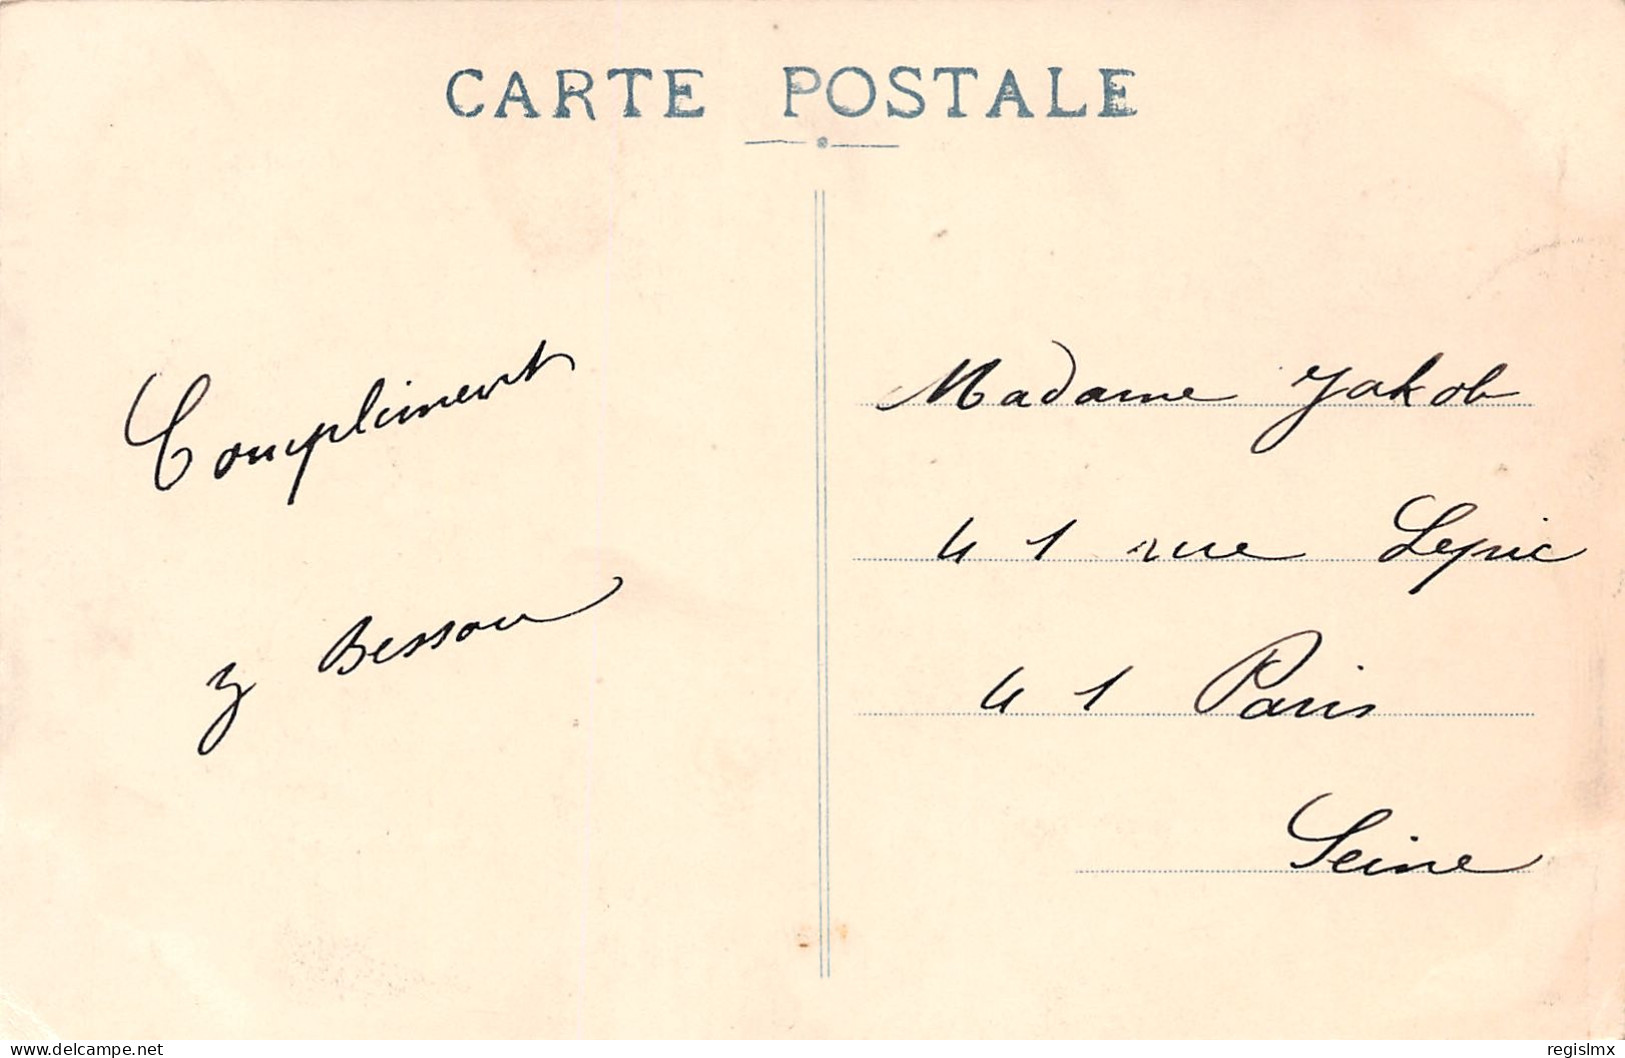 CARTE POSTALE
Compliment
Besson
Madame Jakob
41 rue Lepic
41 Paris
Seine
www.delcampe.net
regislmx